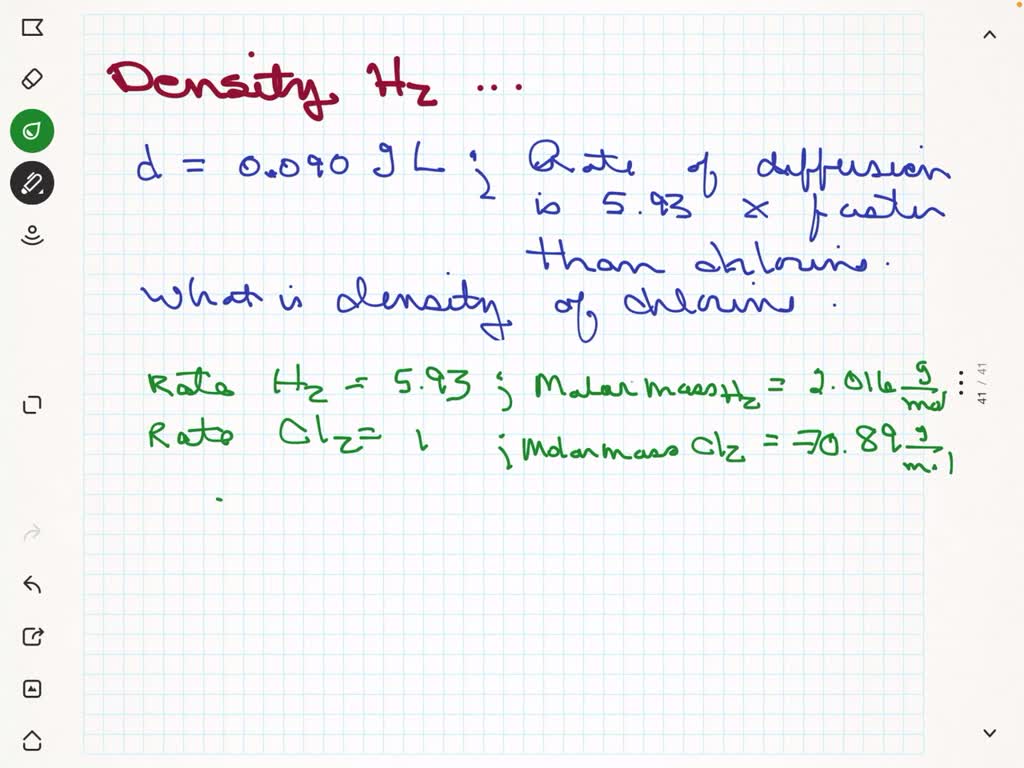 Density H2 ...
d = 0.090 g L ; Rate of diffusion
is 5.93 x faster
than chlorine.
What is density of chlorine.
Rate H2 = 5.93 ; Molar mass H2 = 2.016 g/mol
Rate Cl2 = 1 ; Molar mass Cl2 = 70.89 g/mol
41 / 41